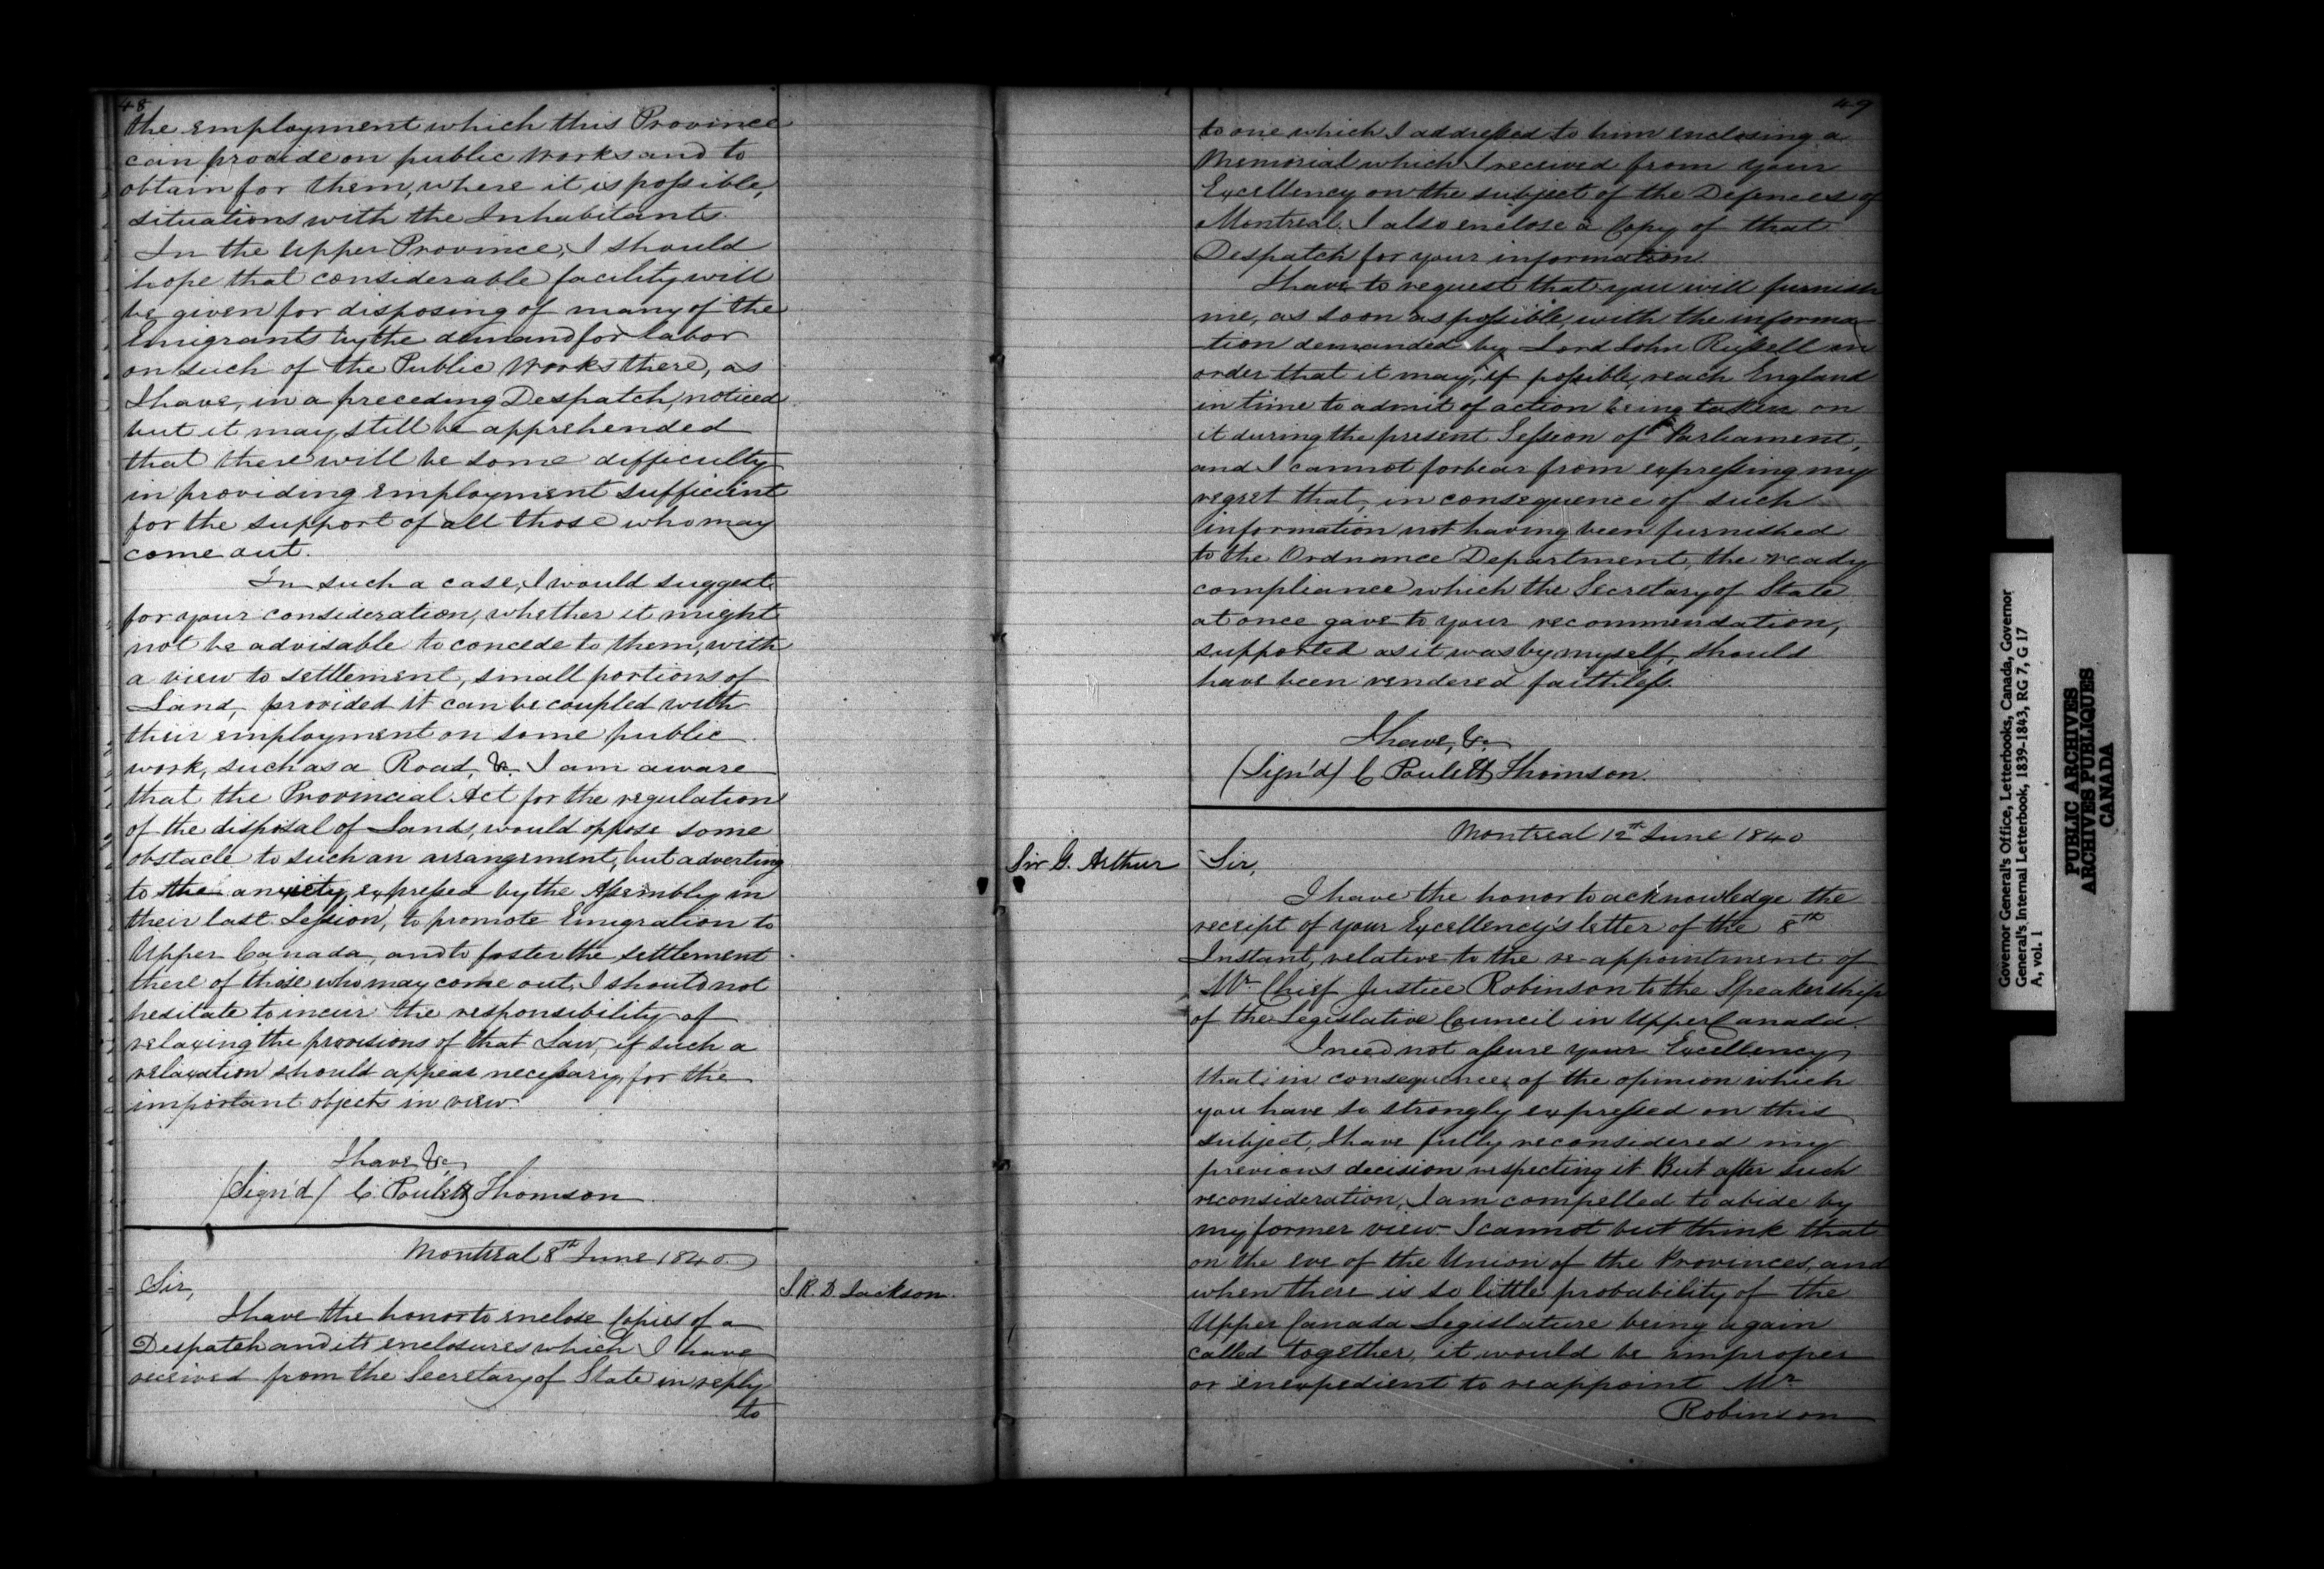 48
the employment which this Province
can provide on public works and to
obtain for them, where it is possible,
situations with the Inhabitants.
In the Upper Province, I should
hope that considerable facility will
be given for disposing of many of the
Emigrants by the demand for labor
on such of the Public Works there, as
I have, in a preceding Despatch, noticed
but it may still be apprehended
that there will be some difficulty
in providing employment sufficient
for the support of all those who may
come out.
In such a case, I would suggest
for your consideration, whether it might
not be advisable to concede to them, with
a view to settlement, small portions of
Land, provided it can be coupled with
their employment on some public
work, such as a Road, &c. I am aware
that the Provincial Act for the regulation
of the disposal of Lands, would oppose some
obstacle to such an arrangement, but adverting
to the anxiety expressed by the Assembly in
their last Session, to promote Emigration to
Upper Canada, and to foster the settlement
there of those who may come out, I should not
hesitate to incur the responsibility of
relaxing the provisions of that Law, if such a
relaxation should appear necessary for the
important objects in view.
I have &c,
(Sign'd) C Poulett Thomson
Montreal 8th June 1840.
Sir,
S. R. D. Jackson.
I have the honor to enclose Copies of a
Despatch and its enclosures which I have
received from the Secretary of State in reply
to
49
to one which I addressed to him enclosing a
Memorial which I received from your
Excellency on the subject of the Defences of
Montreal. I also enclose a Copy of that
Despatch for your information.
I have to request that you will furnish
me, as soon as possible, with the informa
-tion demanded by Lord John Russell in
order that it may, if possible, reach England
in time to admit of action being taken on
it during the present Session of Parliament,
and I cannot forbear from expressing my
regret that, in consequence of such
information not having been furnished
to the Ordnance Department, the ready
compliance which the Secretary of State
at once gave to your recommendation,
supported as it was by myself, should
have been rendered faithless.
I have, &c.
(Sign'd) C Poulett Thomson.
Montreal 12th June 1840
Sir G. Arthur
Sir,
I have the honor to acknowledge the
receipt of your Excellency's letter of the 8th
Instant, relative to the re-appointment of
Mr Chief Justice Robinson to the Speakership
of the Legislative Council in Upper Canada.
I need not assure your Excellency
that, in consequence of the opinion which
you have so strongly expressed on this
subject, I have fully reconsidered my
previous decision respecting it. But after such
reconsideration, I am compelled to abide by
my former view. I cannot but think that
on the eve of the Union of the Provinces, and
when there is so little probability of the
Upper Canada Legislature being again
called together, it would be improper
or inexpedient to reappoint Mr
Robinson
Governor General's Office, Letterbooks, Canada, Governor
General's Internal Letterbook, 1839-1843, RG 7, G 17
A, vol. 1
PUBLIC ARCHIVES
ARCHIVES PUBLIQUES
CANADA